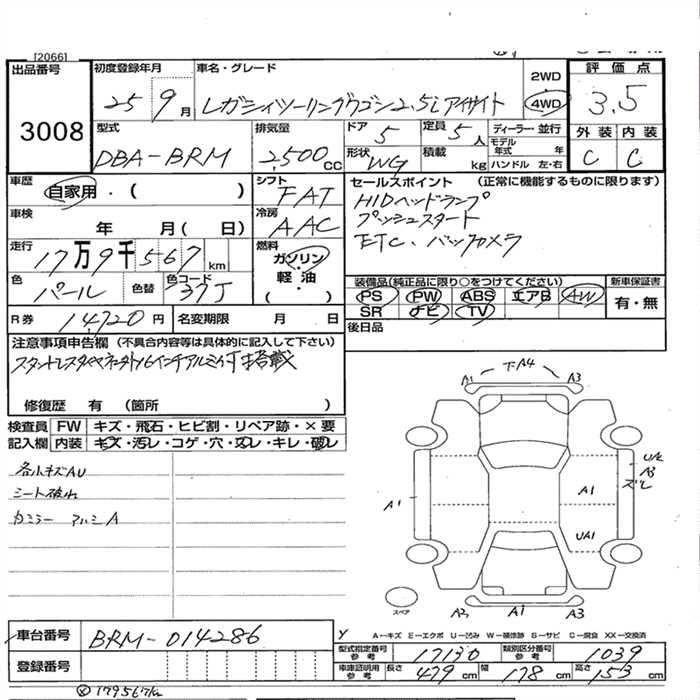 [2066]
出品番号
3008
初度登録年月
25 9月
車名・グレード
レガシィツーリングワゴン2.5i アイサイト
2WD
4WD
評価点
3.5
外装 内装
C C
型式
DBA-BRM
排気量
2,500cc
ドア
5
定員
5人
形状
WG
積載
kg
ディーラー・並行
モデル年式 年
ハンドル 左・右
車歴
自家用・( )
車検
年 月( 日)
走行
17万9千567km
色
パール
色替
色コード
37J
シフト
FAT
冷房
AAC
燃料
ガソリン
・
軽油
( )
セールスポイント (正常に機能するものに限ります)
HIDヘッドランプ
プッシュスタート
ETC、バックカメラ
装備品(純正品に限り○をつけてください)
PS PW ABS エアB AW
SR ナビ TV
新車保証書
有・無
後日品
R券 14,720円
名変期限 月 日
注意事項申告欄 (不具合内容等は具体的に記入して下さい)
16インチアルミ付搭載
修復歴 有 (箇所 )
検査員記入欄
FW キズ・飛石・ヒビ割・リペア跡・×要
内装 キズ・汚レ・コゲ・穴・スレ・キレ・破レ
各小キズAU
シート破れ
カミラー アルミA
A1 下A4 A3
A1
A1
UA1
A3
スレ
スペア
A2 A1 A3
車台番号
BRM-014286
登録番号
A─キズ E─エクボ U─凹み W─補修跡 S─サビ C─腐食 XX─交換済
型式指定番号 参考
17130
類別区分番号 参考
1039
車庫証明用 参考
長さ 479cm 幅 178cm 高さ 153cm
179567km